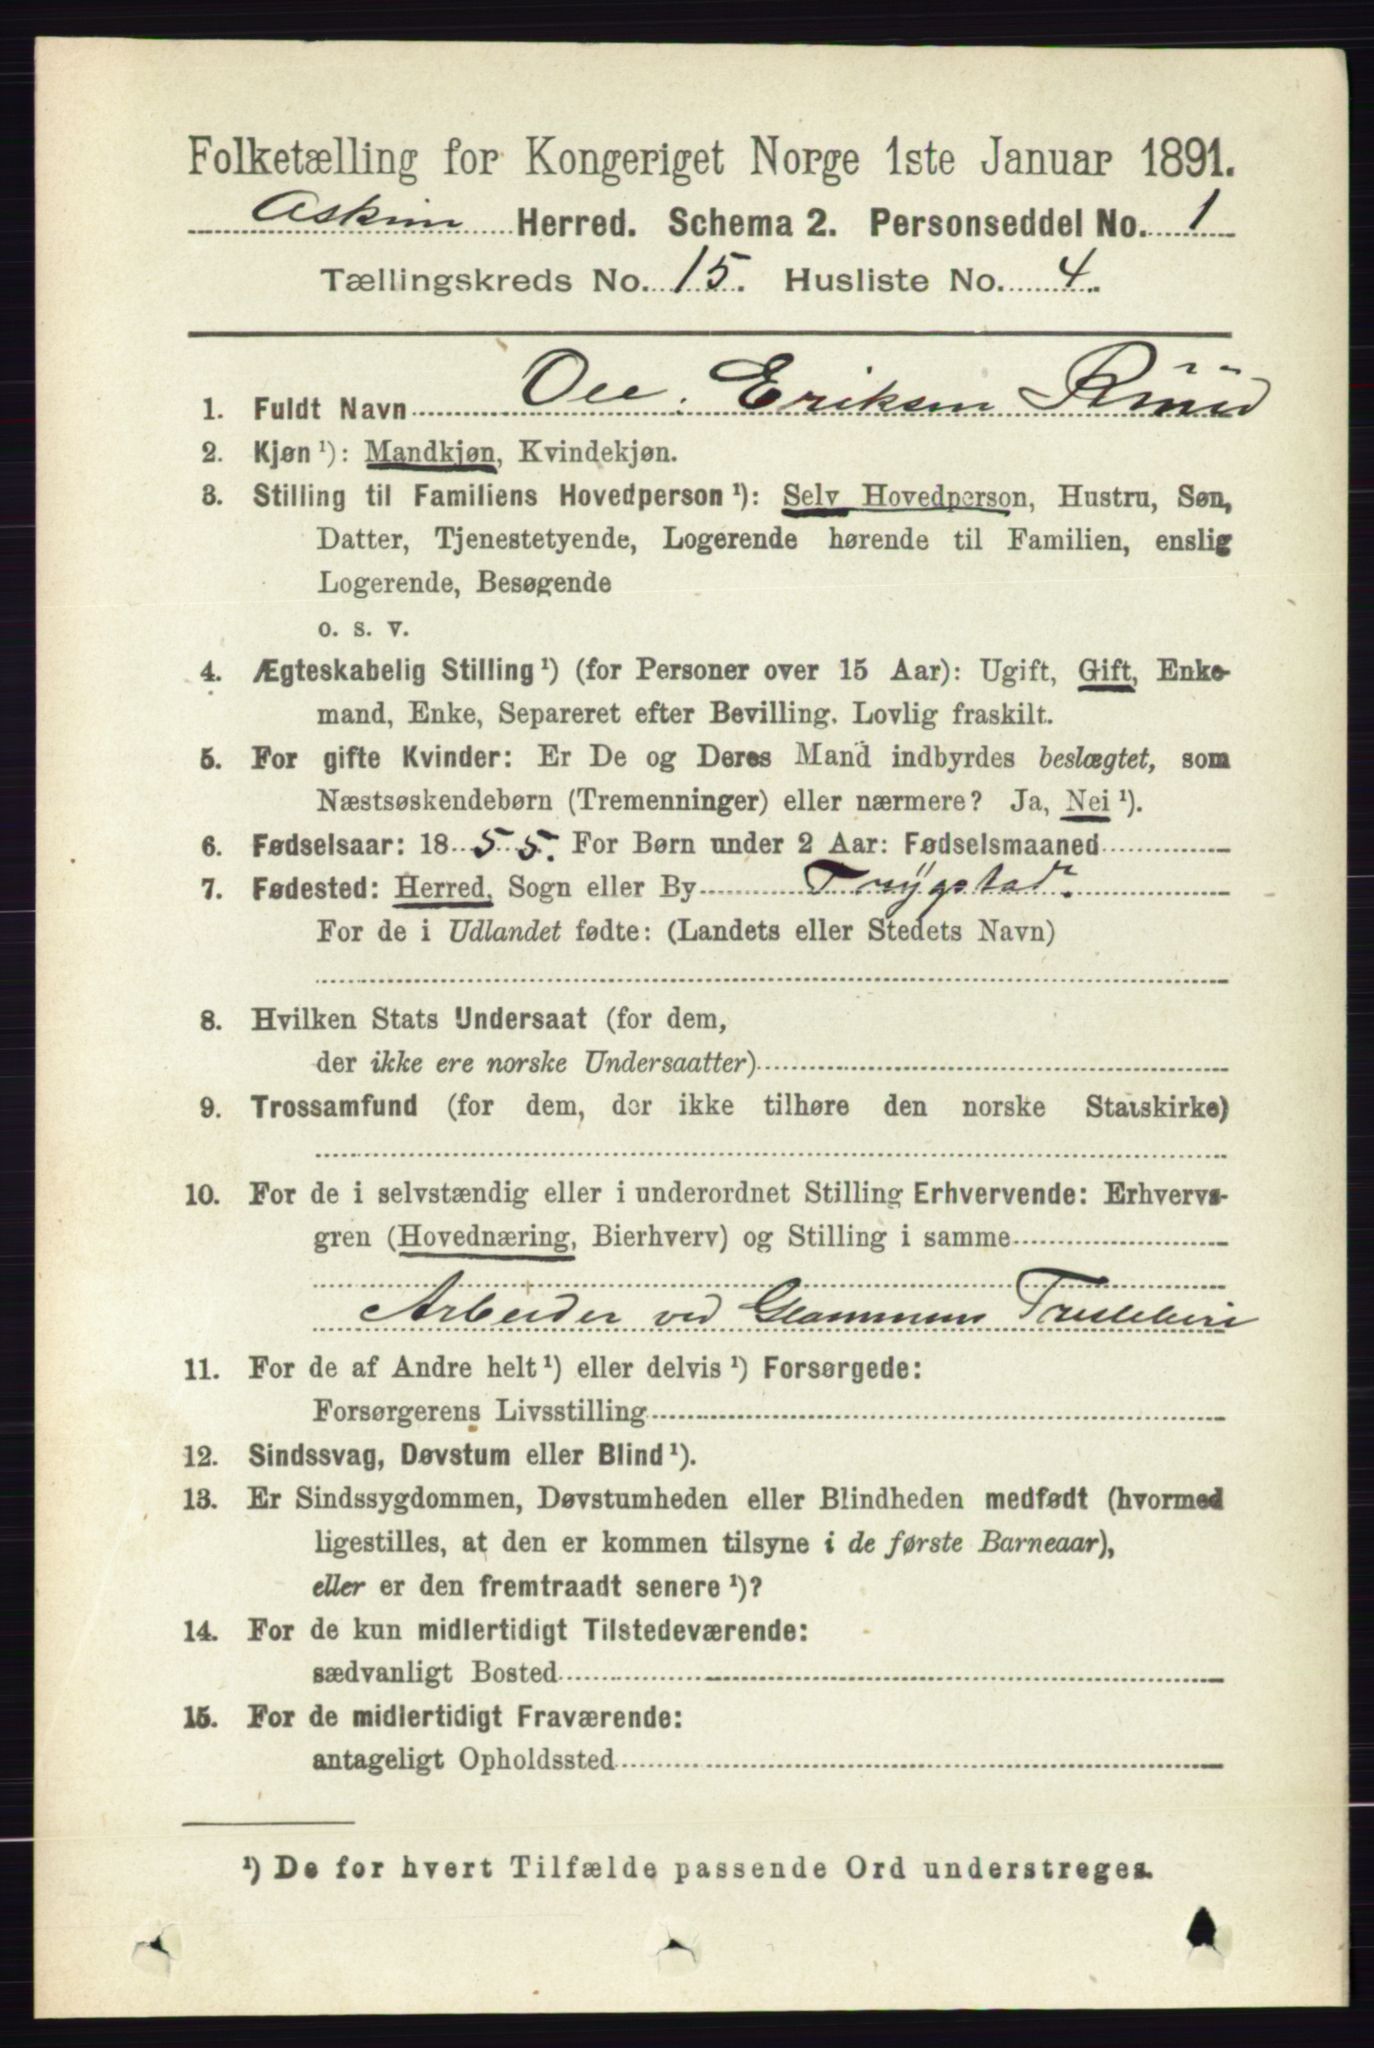 Folketælling for Kongeriget Norge 1ste Januar 1891.
Askim Herred. Schema 2. Personseddel No. 1
Tællingskreds No. 15. Husliste No. 4.
1. Fuldt Navn Ole Eriksen
2. Kjøn ¹): Mandkjøn, Kvindekjøn.
3. Stilling til Familiens Hovedperson ¹): Selv Hovedperson, Hustru, Søn,
Datter, Tjenestetyende, Logerende hørende til Familien, enslig
Logerende, Besøgende
o. s. v.
4. Ægteskabelig Stilling ¹) (for Personer over 15 Aar): Ugift, Gift, Enke-
mand, Enke, Separeret efter Bevilling. Lovlig fraskilt.
5. For gifte Kvinder: Er De og Deres Mand indbyrdes beslægtet, som
Næstsøskendebørn (Tremenninger) eller nærmere? Ja, Nei ¹).
6. Fødselsaar: 1855. For Børn under 2 Aar: Fødselsmaaned
7. Fødested: Herred, Sogn eller By Trygstad.
For de i Udlandet fødte: (Landets eller Stedets Navn)
8. Hvilken Stats Undersaat (for dem,
der ikke ere norske Undersaatter)
9. Trossamfund (for dem, der ikke tilhøre den norske Statskirke)
10. For de i selvstændig eller i underordnet Stilling Erhvervende: Erhvervs-
gren (Hovednæring, Bierhverv) og Stilling i samme
Arbeider ved Glommens Træsliberi
11. For de af Andre helt ¹) eller delvis ¹) Forsørgede:
Forsørgerens Livsstilling
12. Sindssvag, Døvstum eller Blind ¹).
13. Er Sindssygdommen, Døvstumheden eller Blindheden medfødt (hvormed
ligestilles, at den er kommen tilsyne i de første Barneaar),
eller er den fremtraadt senere ¹)?
14. For de kun midlertidigt Tilstedeværende:
sædvanligt Bosted
15. For de midlertidigt Fraværende:
antageligt Opholdssted
¹) De for hvert Tilfælde passende Ord understreges.